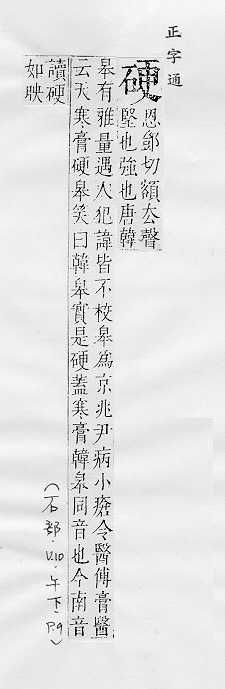 正字通
硬 恩郢切額去聲
堅也強也唐韓
皋有雅量遇人犯諱皆不校皋為京兆尹病小瘡令醫傅膏醫
云天寒膏硬皋笑曰韓皋實是硬蓋寒膏韓皋同音也今南音
讀硬
如映
(石部．V.10．午下．P.9)